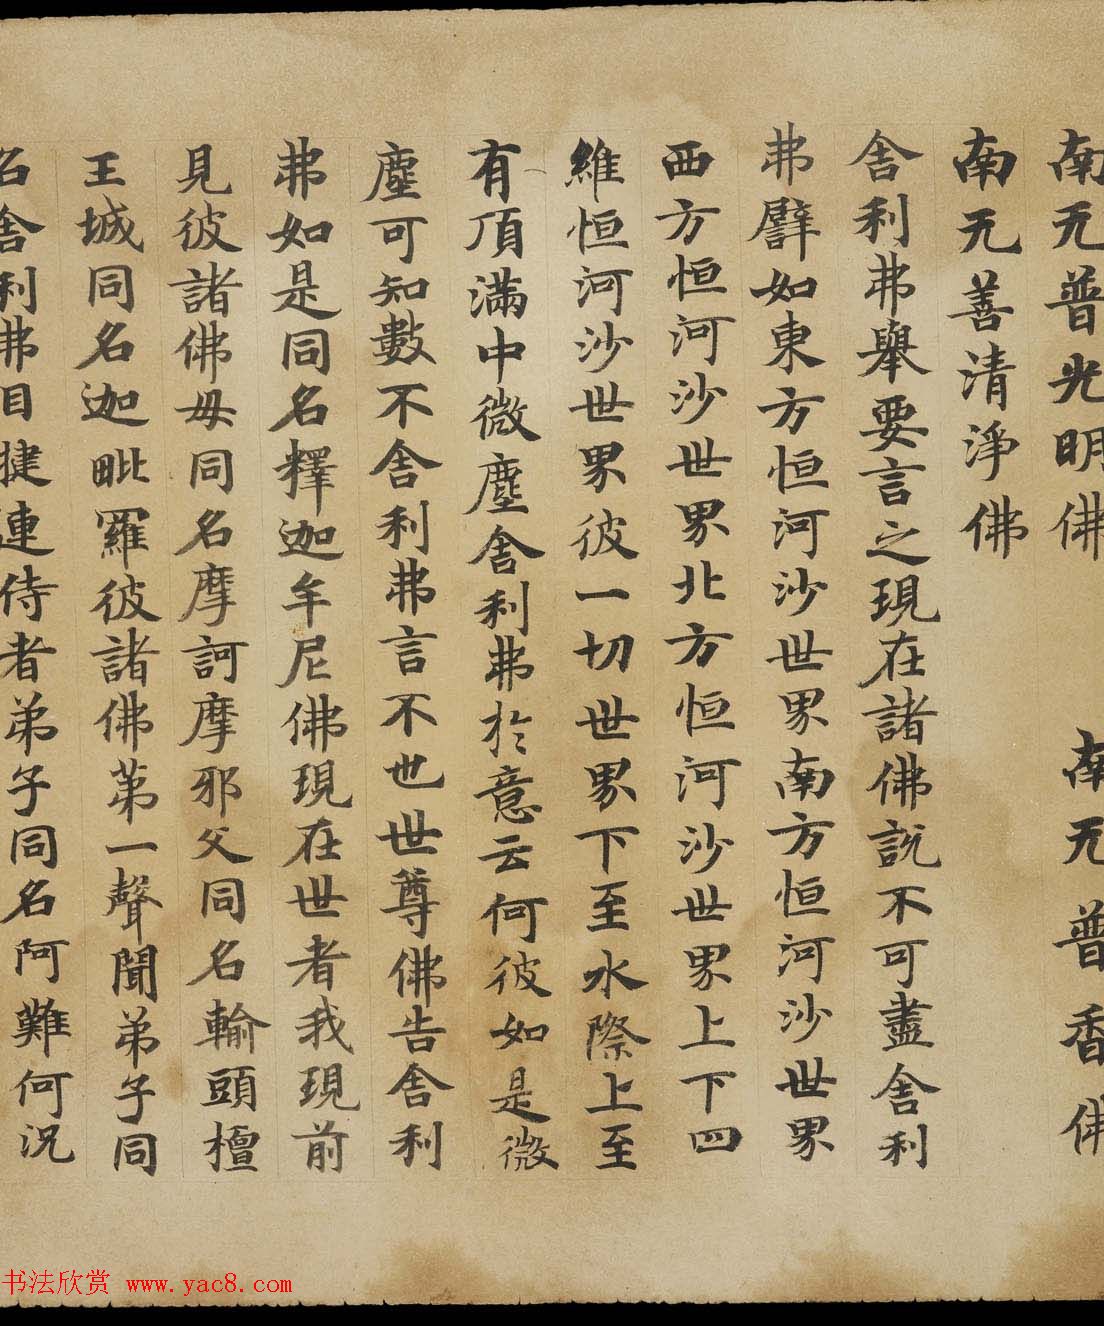 南无普光明佛　南无普香佛
南无善清淨佛
舍利弗舉要言之現在諸佛説不可盡舍利
弗譬如東方恒河沙世界南方恒河沙世界
西方恒河沙世界北方恒河沙世界上下四
維恒河沙世界彼一切世界下至水際上至
有頂滿中微塵舍利弗於意云何彼如是微
塵可知數不舍利弗言不也世尊佛告舍利
弗如是同名釋迦牟尼佛現在世者我現前
見彼諸佛母同名摩訶摩邪父同名輸頭檀
王城同名迦毗羅彼諸佛第一聲聞弟子同
名舍利弗目揵連侍者弟子同名阿難何況
书法欣赏 www.yac8.com